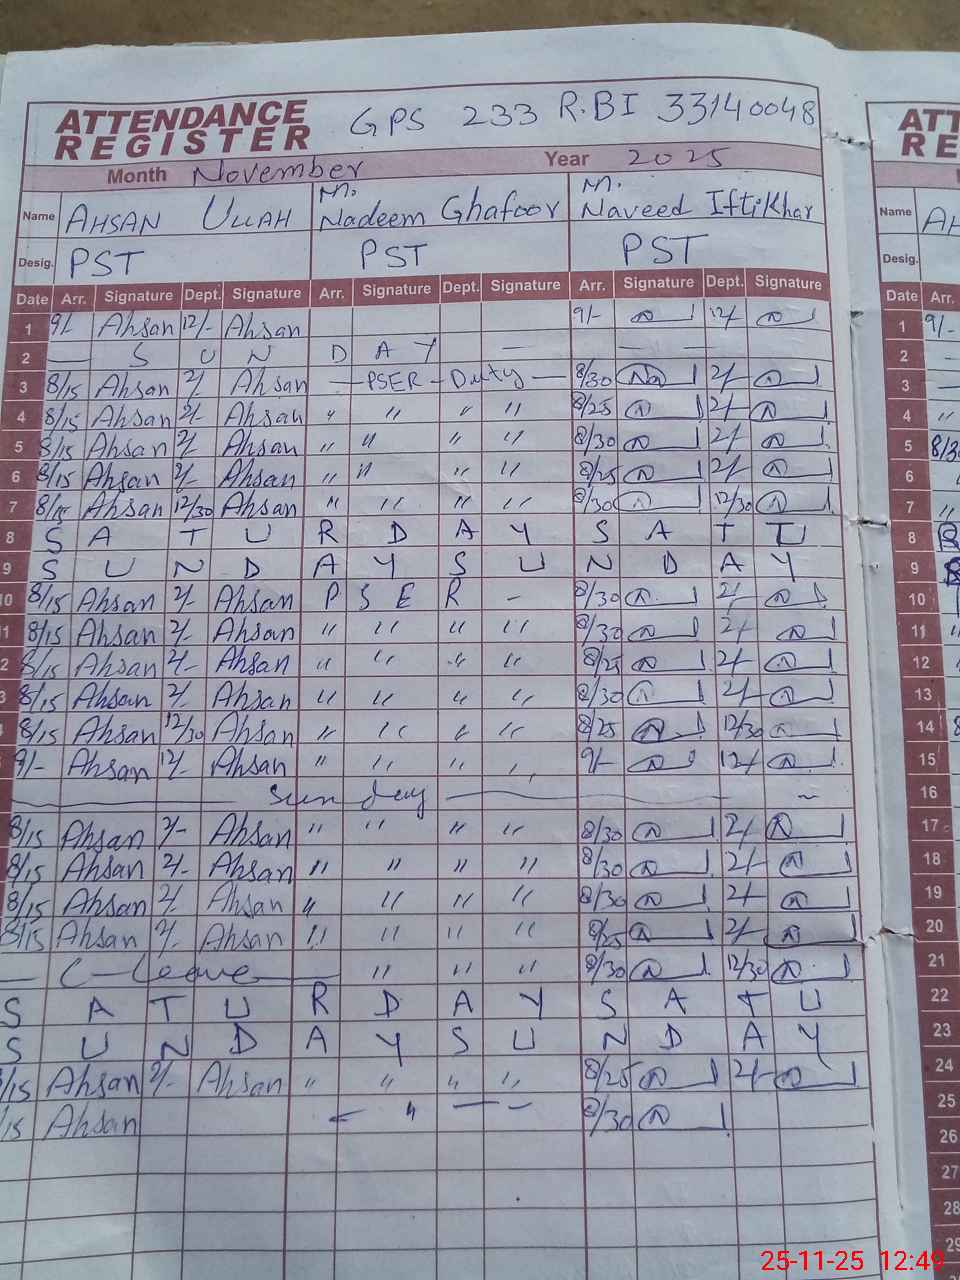 ATTENDANCE REGISTER GPS 233 R.BI 33140048
Month November Year 2025
Name AHSAN ULLAH M. Nadeem Ghafoor M. Naveed Iftikhar
Desig. PST PST PST
Date Arr. Signature Dept. Signature Arr. Signature Dept. Signature Arr. Signature Dept. Signature
1 9/- Ahsan 12/- Ahsan 9/- 12/-
2 — S U N D A Y — — —
3 8/15 Ahsan 2/- Ahsan — PSER - Duty — 8/30 2/-
4 8/15 Ahsan 2/- Ahsan " " " " 8/25 2/-
5 8/15 Ahsan 2/- Ahsan " " " " 8/30 2/-
6 8/15 Ahsan 2/- Ahsan " " " " 8/25 2/-
7 8/15 Ahsan 12/30 Ahsan " " " " 8/30 12/30
8 S A T U R D A Y S A T U
9 S U N D A Y S U N D A Y
10 8/15 Ahsan 2/- Ahsan P S E R - 8/30 2/-
11 8/15 Ahsan 2/- Ahsan " " " " 8/30 2/-
2 8/15 Ahsan 2/- Ahsan " " " " 8/25 2/-
3 8/15 Ahsan 2/- Ahsan " " " " 8/30 2/-
8/15 Ahsan 12/30 Ahsan " " " " 8/25 12/30
9/- Ahsan 12/- Ahsan " " " " 9/- 12/-
Sunday
8/15 Ahsan 2/- Ahsan " " " " 8/30 2/-
8/15 Ahsan 2/- Ahsan " " " " 8/30 2/-
8/15 Ahsan 2/- Ahsan " " " " 8/30 2/-
8/15 Ahsan 2/- Ahsan " " " " 8/25 2/-
— C-Leave — " " " 8/30 12/30
S A T U R D A Y S A T U
S U N D A Y S U N D A Y
/15 Ahsan 2/- Ahsan " " " " 8/25 2/-
/15 Ahsan " 8/30
ATT
RE
Name AH
Desig.
Date Arr.
1 9/-
2 —
3 —
4 "
5 8/3
6
7 "
8
9
10
11
12
13
14 8
15
16
17
18
19
20
21
22
23
24
25
26
27
28
29
25-11-25 12:49